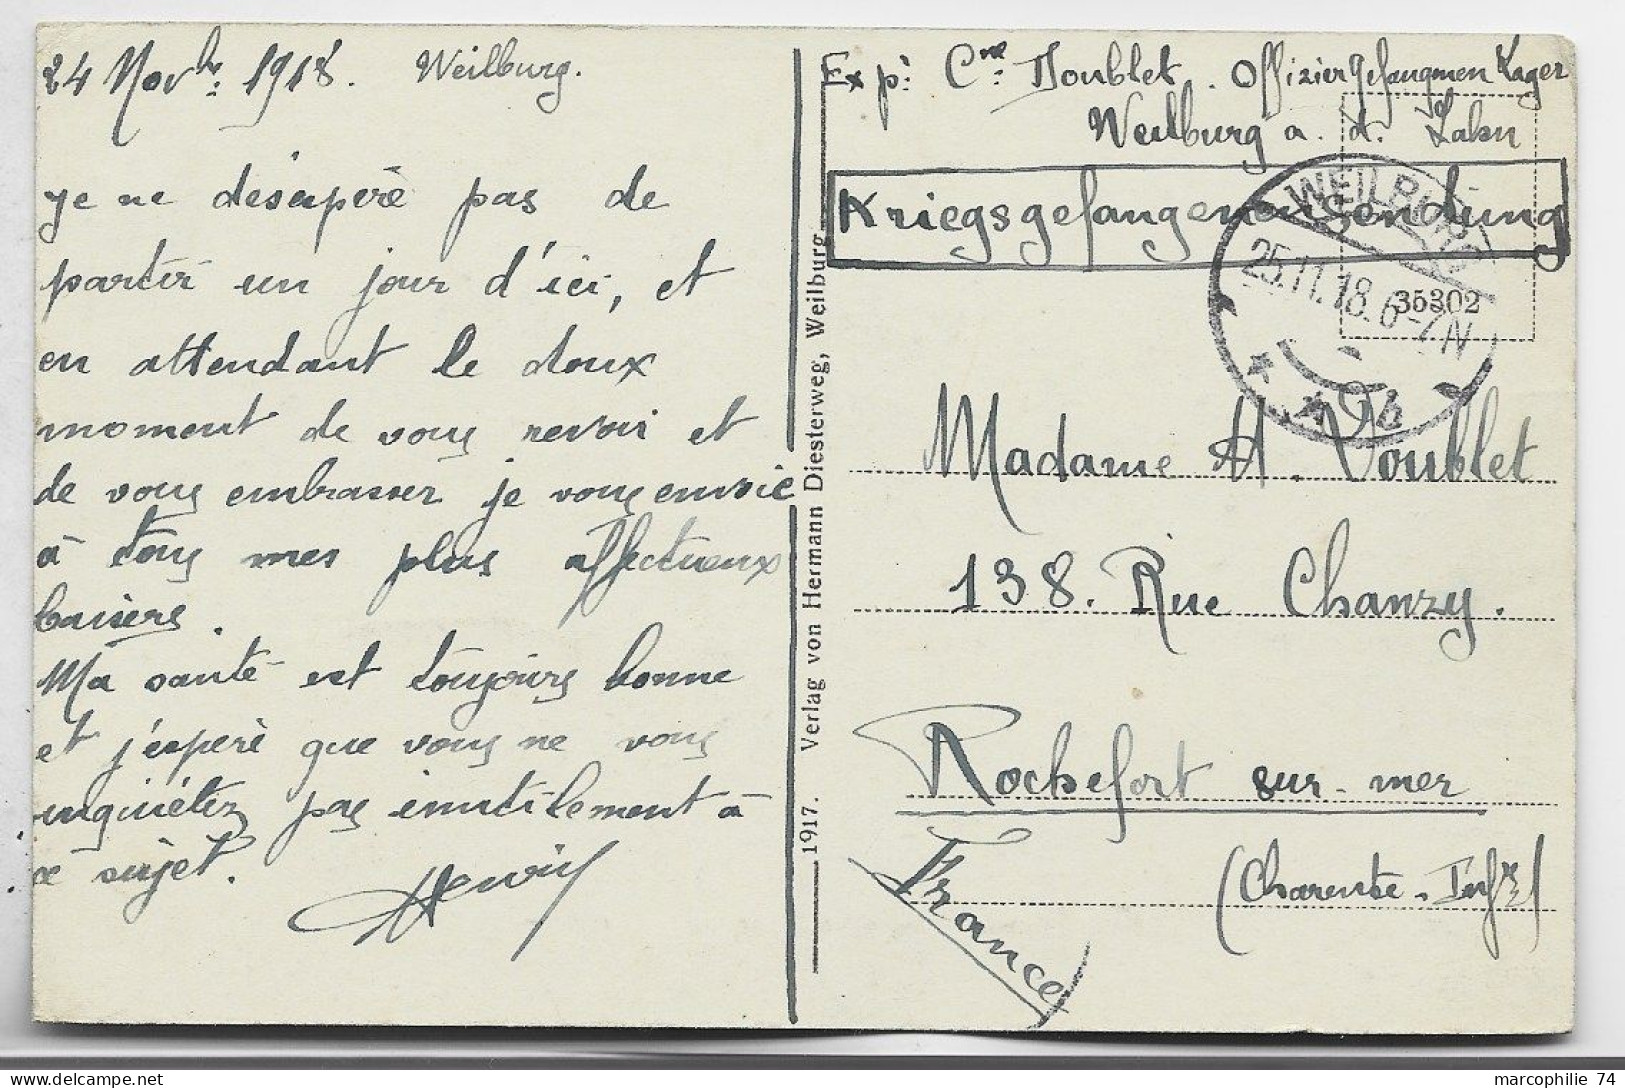 24 Novbre: 1918. Weilburg.
Je ne désespère pas de
partir un jour d'ici, et
en attendant le doux
moment de vous revoir et
de vous embrasser je vous envoie
à tous mes plus affectueux
baisers.
Ma santé est toujours bonne
et j'espère que vous ne vous
inquiétez pas inutilement à
ce sujet.
Henri
1917. Verlag von Hermann Diesterweg, Weilburg
Exp: Cne Doublet. Offiziergefangnen Lager
Weilburg a. d. Lahn
Kriegsgefangenensendung
WEILBURG
25.11.18.6-7N
35302
Madame H. Doublet
138. Rue Chanzy.
Rochefort sur-mer
(Charente-Infre)
France
marcophilie 74